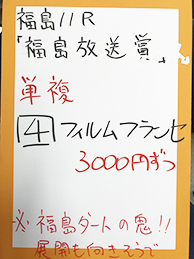 福島11R
「福島放送賞」
単複
4 フィルムフランセ
3000円ずつ
※福島ダートの鬼!!
展開も向きそうで